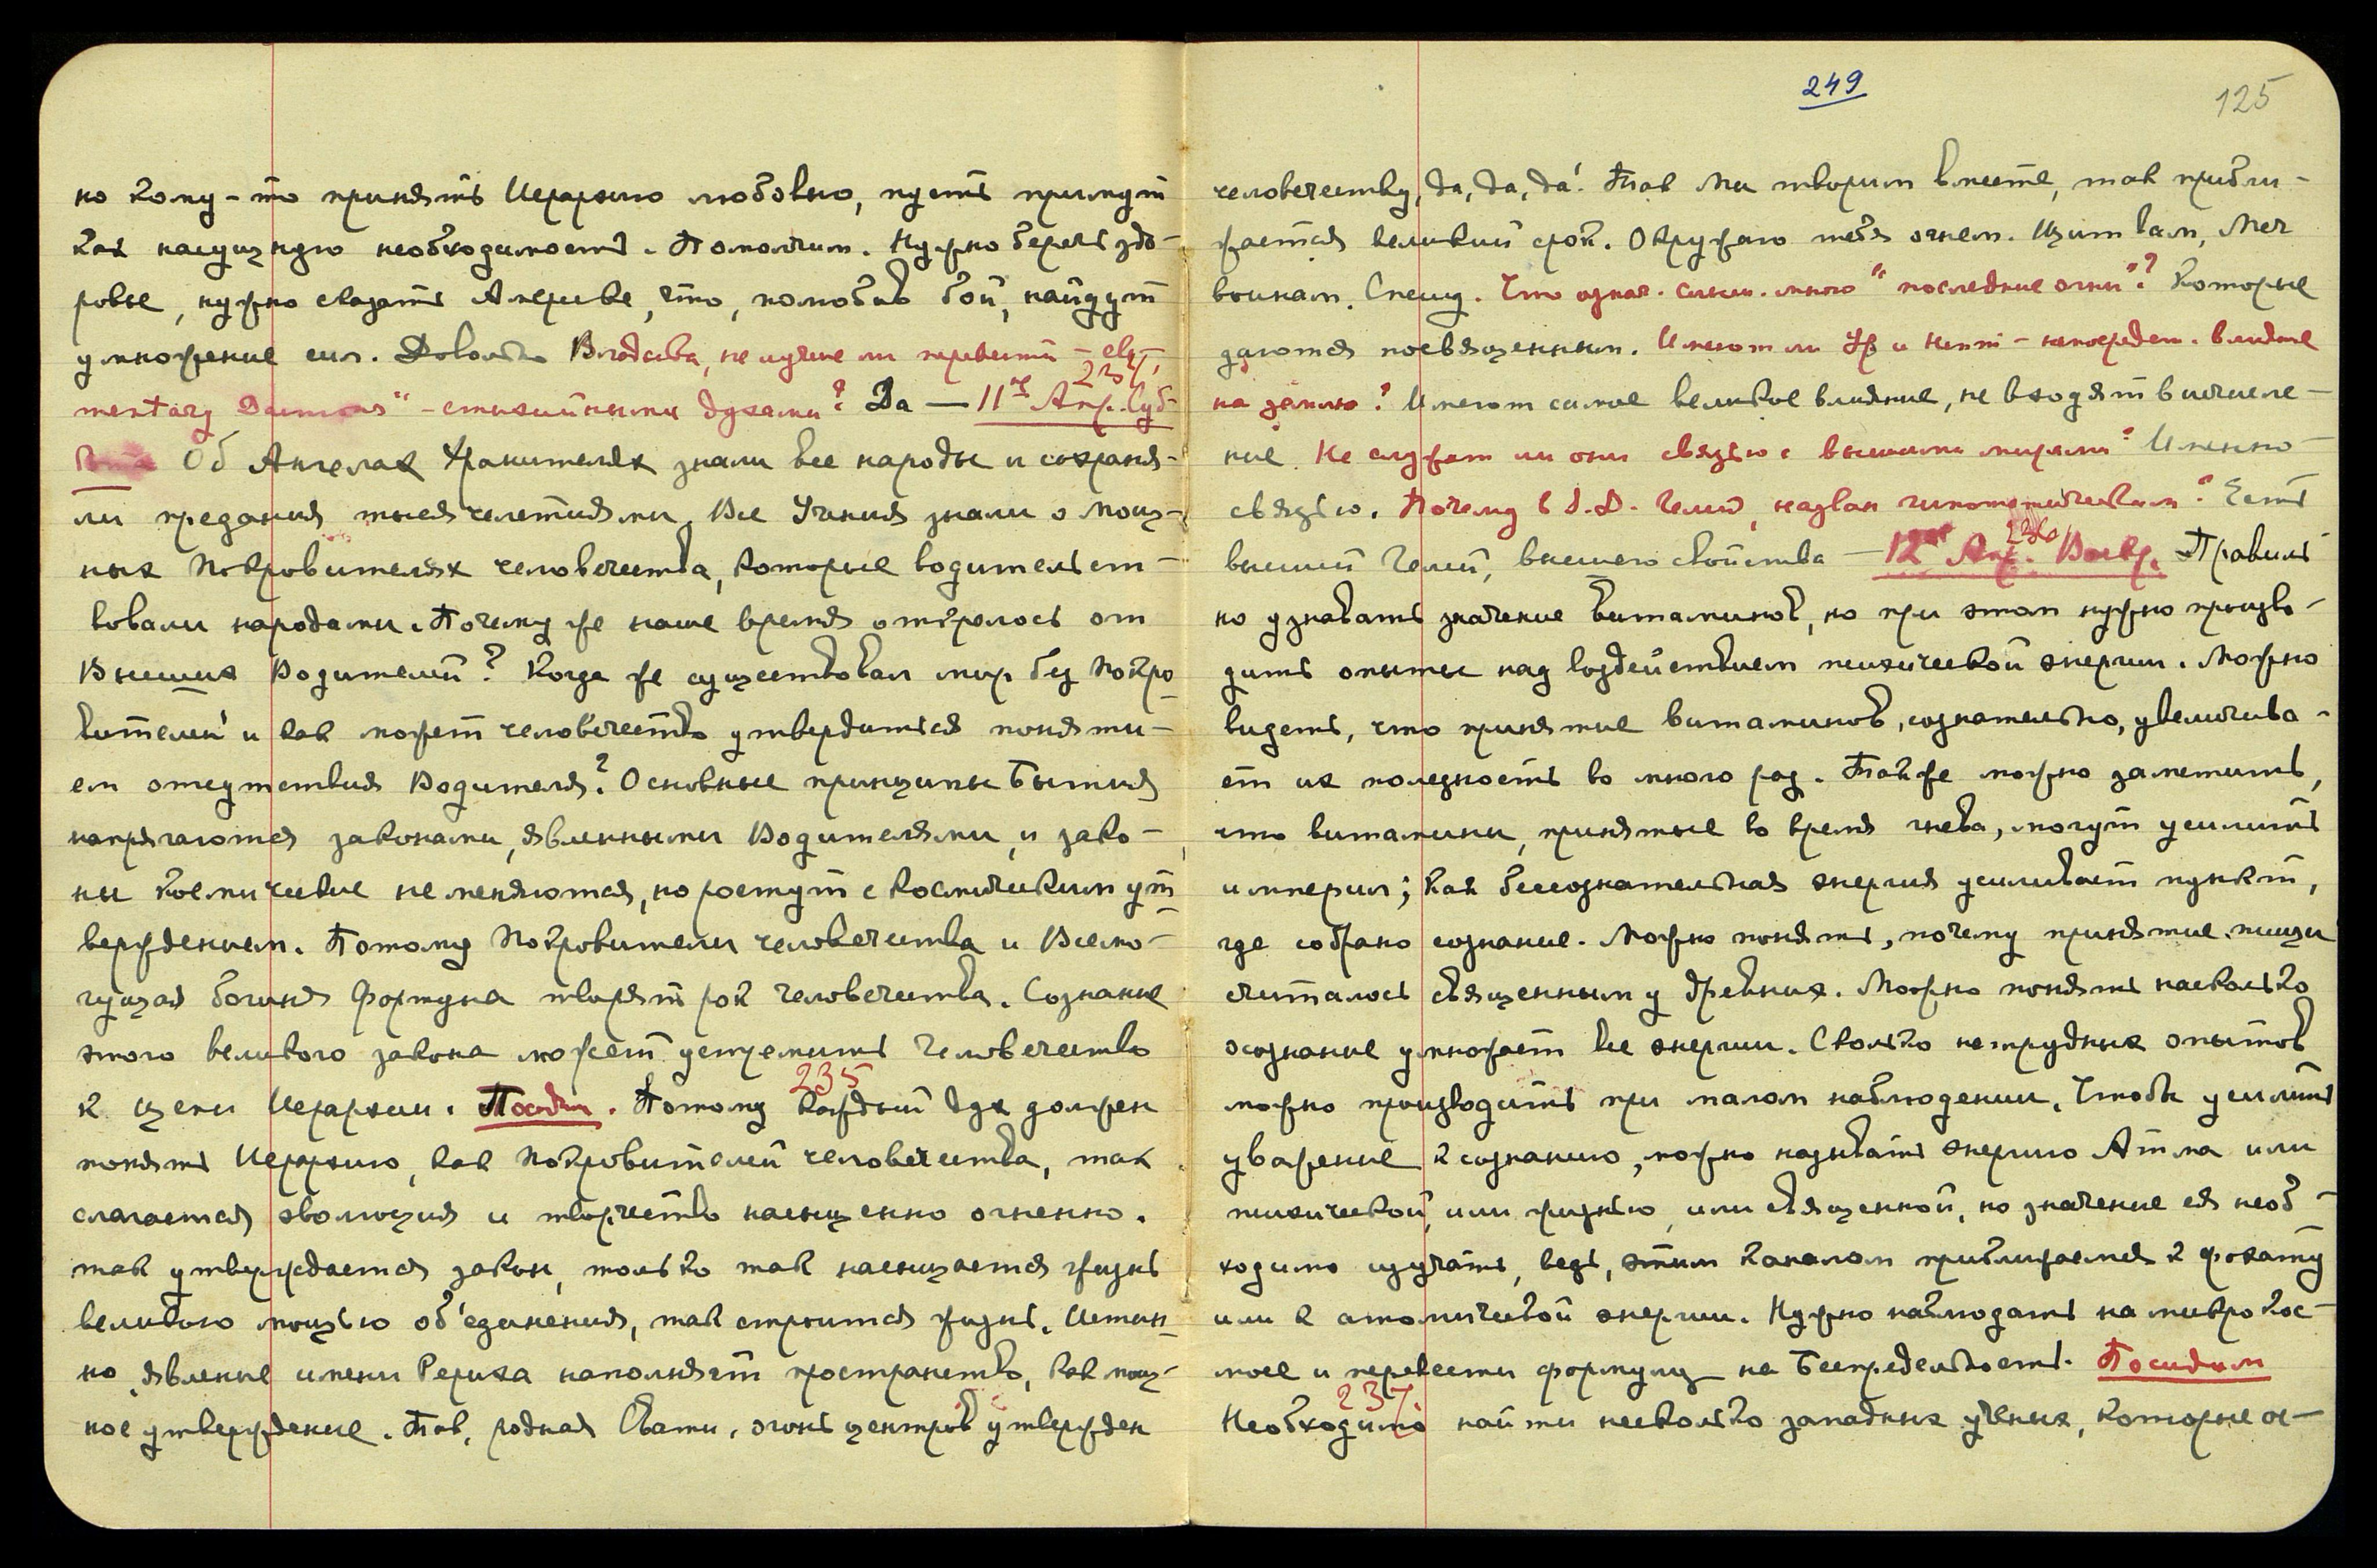 но кому-то принять Иерархию любовно, пусть примут
как насущную необходимость. Помолчим. Нужно беречь здо-
ровье, нужно сказать Америке, что, полюбив бой, найдут
умножение сил. Довольно Владыка, не лучше ли перевести - ele-
234
mentary - стихийными духами? Да — 11го Апр. Суб-
Об Ангелах Хранителях знали все народы и сохраня-
ли предания тысячелетиями. Все Учения знали о мощ-
ных Покровителях человечества, которые водительст-
вовали народами. Почему же наше время отреклось от
Высших Водителей? Когда же существовал мир без Покро-
вителей и как может человечество утвердиться поняти-
ем отсутствия Водителя? Основные принципы Бытия
напрягаются законами, явленными Водителями, и зако-
ны космические не меняются, но растут с космическим ут-
верждением. Потому Покровители человечества и Всемо-
гущая богиня Фортуна творят рок человечества. Сознание
этого великого закона может устремить Человечество
235
к цепи Иерархии. Посидим. Потому каждый дух должен
понять Иерархию, как Покровителей человечества, так
слагается эволюция и творчество насыщенно огненно.
так утверждается закон, только так насыщается жизнь
великою мощью об'единения, так строится жизнь. Истин-
но явление имени Рериха наполняет пространство, как мощ-
ное утверждение. Так, родная Свати, огонь центров утвержден
249
125
человечеству, да, да, да! Так Мы творим вместе, так прибли-
жается великий срок. Окружаю тебя огнем. Щит вам, Меч
воинам. Спешу. Что означ. слыш. много "последние огни"? Которые
даются посвященным. Имеют ли Ур. и Непт - непосредст. влияние
на землю? Имеют самое великое влияние, не входят в исчисле-
ние. Не служат ли они связью с высшими мирами? Именно
связью. Почему в Т.Д. Гелий назван гипотетическим? Есть
236
высший Гелий, высшего свойства — 12го Апр. Воскр. Правиль
но узнавать значение витаминов, но при этом нужно произво-
дить опыты над воздействием психической энергии. Можно
видеть, что принятие витаминов, сознательно, увеличива-
ет их полезность во много раз. Также можно заметить,
что витамины, принятые во время гнева, могут усилить
империл; как бессознательная энергия усиливает пункт,
где собрано сознание. Можно понять, почему принятие пищи
считалось священным у древних. Можно понять насколько
осознание умножает все энергии. Сколько нетрудных опытов
можно производить при малом наблюдении. Чтобы усилить
уважение к сознанию, можно называть энергию Атма или
психической, или жизнью, или священной, но значение ея необ-
ходимо изучать, ведь, этим каналом приближаемся к фохату
или к атомической энергии. Нужно наблюдать на микрокос-
мосе и перевести формулу на Беспредельность. Посидим
237
Необходимо найти несколько западных ученых, которые о-